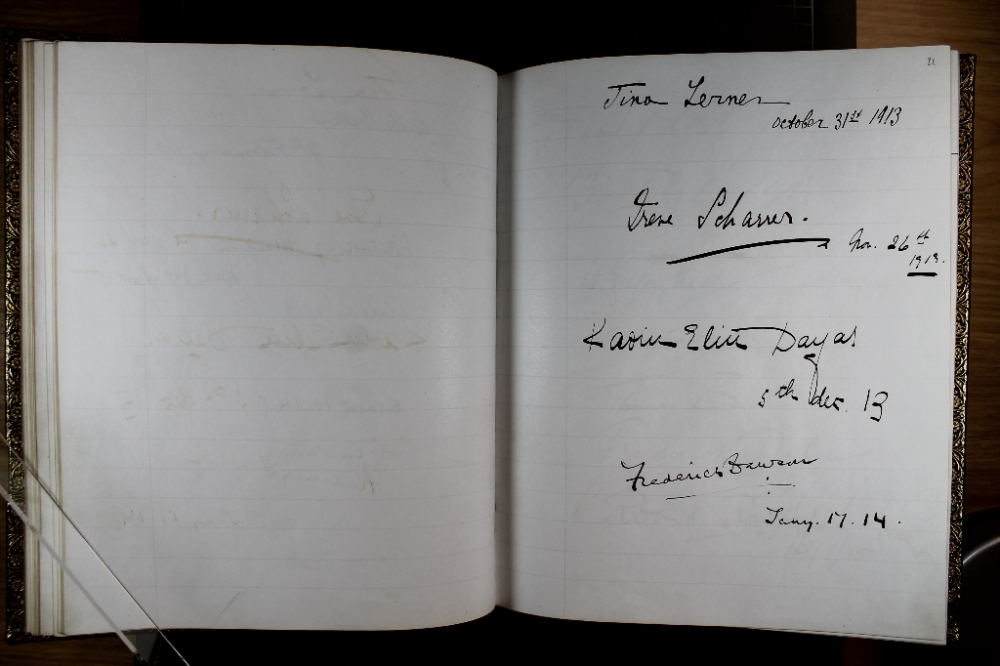 21
Tina Lerner
October 31st 1913
Irene Scharrer.
Nov. 26th
1913.
Karin Elin Dayas
5th dec. 13
Frederick Dawson
Jany. 17. 14.